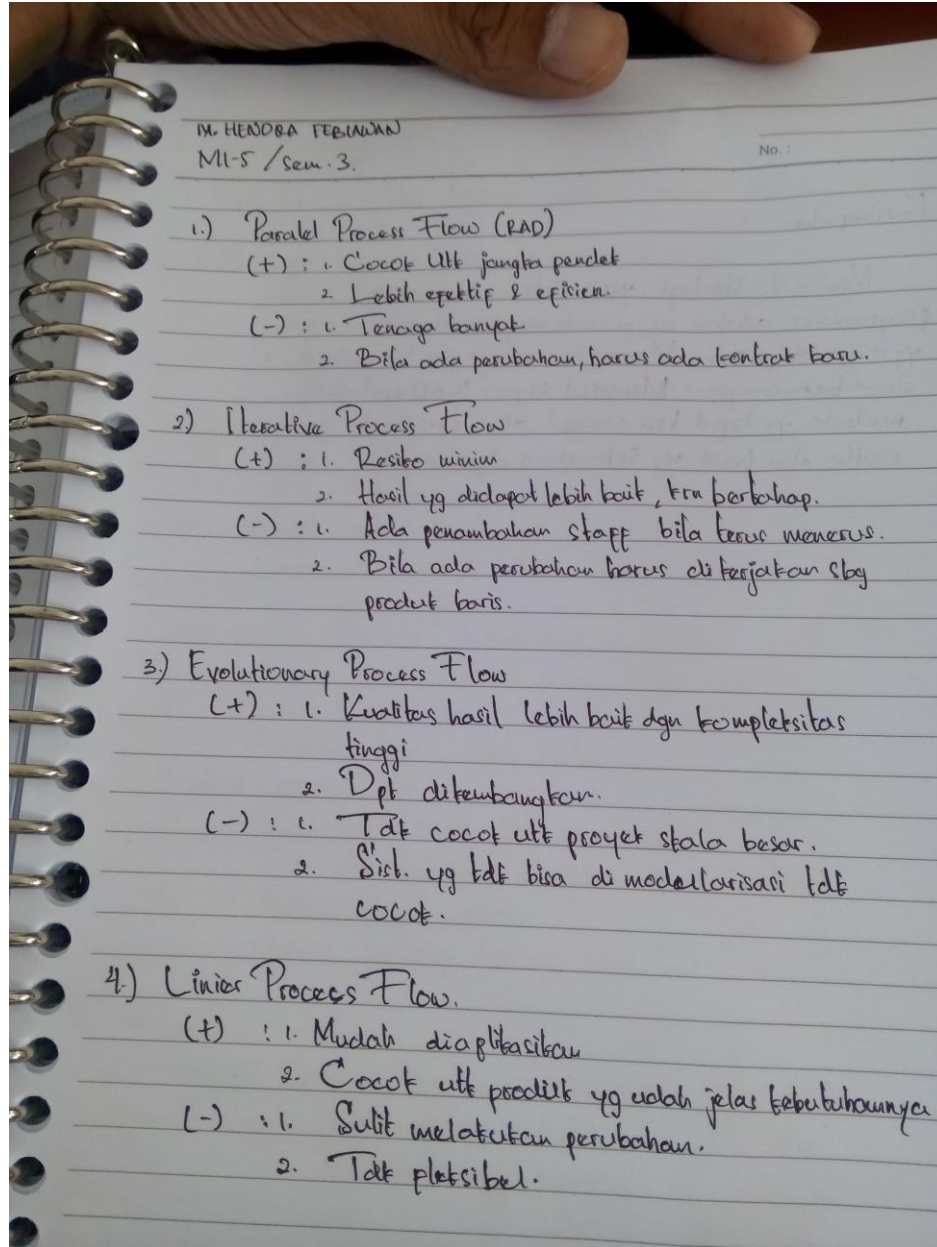 M. HENDRA FEBIAWAN
MI-5 / Sem. 3.
No. :
1.) Paralel Process Flow (RAD)
(+) : 1. Cocok Utk jangka pendek
2. Lebih efektif & efisien
(-) : 1. Tenaga banyak
2. Bila ada perubahan, harus ada kontrak baru.
2) Iterative Process Flow
(+) : 1. Resiko minim
2. Hasil yg didapat lebih baik, krn bertahap.
(-) : 1. Ada penambahan staff bila terus menerus.
2. Bila ada perubahan harus di kerjakan sbg
produk baris.
3.) Evolutionary Process Flow
(+) : 1. Kualitas hasil lebih baik dgn kompleksitas
tinggi
2. Dpt dikembangkan.
(-) : 1. Tdk cocok utk proyek skala besar.
2. Sist. yg tdk bisa di modellarisasi tdk
cocok.
4.) Linier Process Flow.
(+) : 1. Mudah diaplikasikan
2. Cocok utk produk yg udah jelas kebutuhannya
(-) : 1. Sulit melakukan perubahan.
2. Tdk fleksibel.